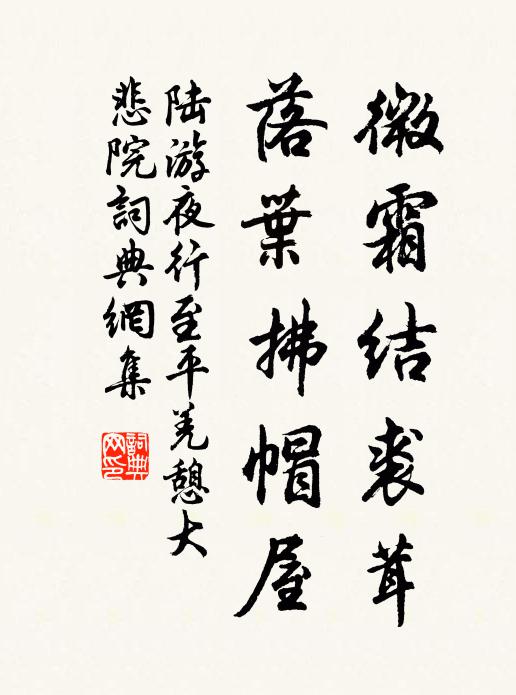 微霜结裘茸
落葉拂帽屋
陆游夜行至平羌憩大
悲院詞典網集
詞典網印